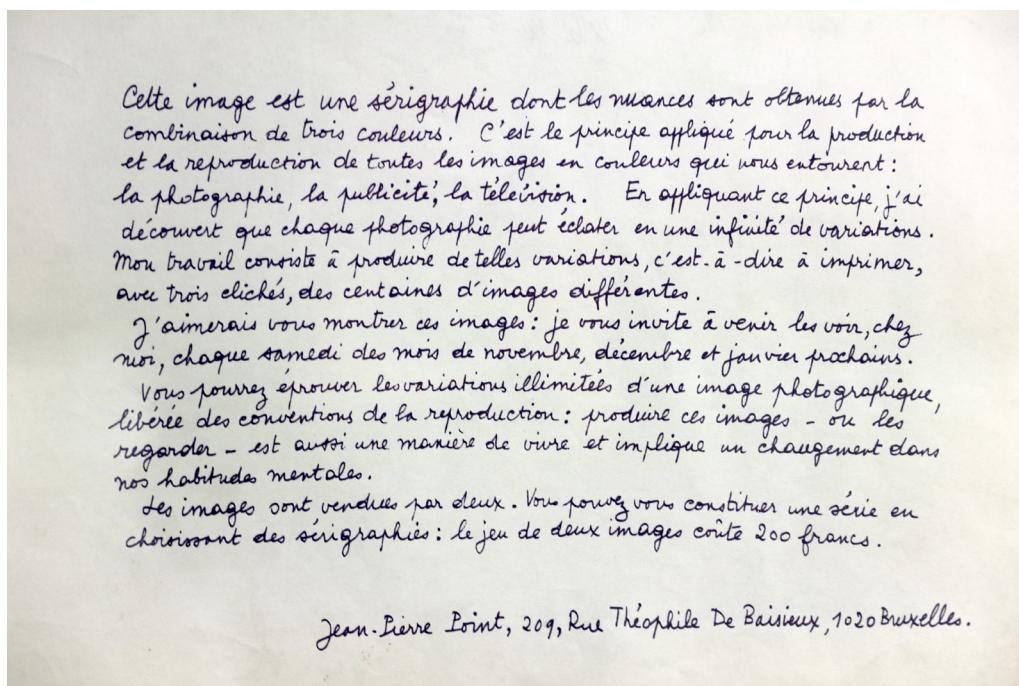 Cette image est une sérigraphie dont les nuances sont obtenues par la
combinaison de trois couleurs. C'est le principe appliqué pour la production
et la reproduction de toutes les images en couleurs qui nous entourent :
la photographie, la publicité, la télévision. En appliquant ce principe, j'ai
découvert que chaque photographie peut éclater en une infinité de variations.
Mon travail consiste à produire de telles variations, c'est-à-dire à imprimer,
avec trois clichés, des centaines d'images différentes.
J'aimerais vous montrer ces images : je vous invite à venir les voir, chez
moi, chaque samedi des mois de novembre, décembre et janvier prochains.
Vous pourrez éprouver les variations illimitées d'une image photographique,
libérée des conventions de la reproduction : produire ces images - ou les
regarder - est aussi une manière de vivre et implique un changement dans
nos habitudes mentales.
Les images sont vendues par deux. Vous pouvez vous constituer une série en
choisissant des sérigraphies : le jeu de deux images coûte 200 francs.
Jean-Pierre Point, 209, Rue Théophile De Baisieux, 1020 Bruxelles.